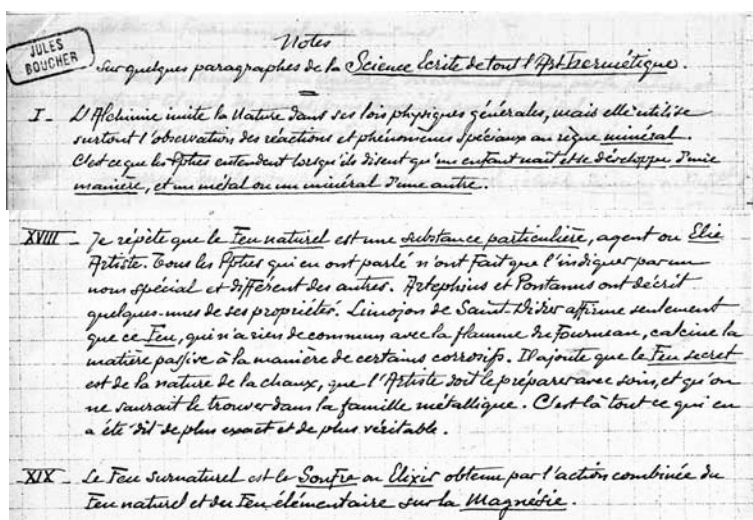 JULES
BOUCHER
Notes
Sur quelques paragraphes de la Science Ecrite de tout l'Art hermétique.
I _ L'Alchimie imite la Nature dans ses lois physiques générales, mais elle utilise
surtout l'observation des réactions et phénomènes spéciaux au règne minéral.
C'est ce que les Pphes entendent lorsqu'ils disent qu'un enfant naît et se développe d'une
manière, et un métal ou un minéral d'une autre.
XVIII _ Je répète que le Feu naturel est une substance particulière, agent ou Elie
Artiste. Tous les Pphes qui en ont parlé n'ont fait que l'indiquer par un
nom spécial et différent des autres. Artephius et Pontanus ont décrit
quelques-unes de ses propriétés. Limojon de Saint-Didier affirme seulement
que ce Feu, qui n'a rien de commun avec la flamme du fourneau, calcine la
matière passive à la manière de certains corrosifs. Il ajoute que le Feu secret
est de la nature de la chaux, que l'Artiste doit le préparer avec soin, et qu'on
ne saurait le trouver dans la famille métallique. C'est là tout ce qui en
a été dit de plus exact et de plus véritable.
XIX _ Le Feu surnaturel est le Soufre ou Elixir obtenu par l'action combinée du
Feu naturel et du Feu élémentaire sur la Magnésie.